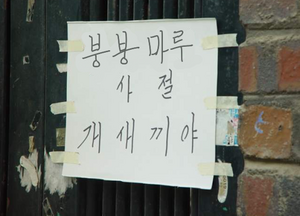 붕봉마루
사 절
개새끼야